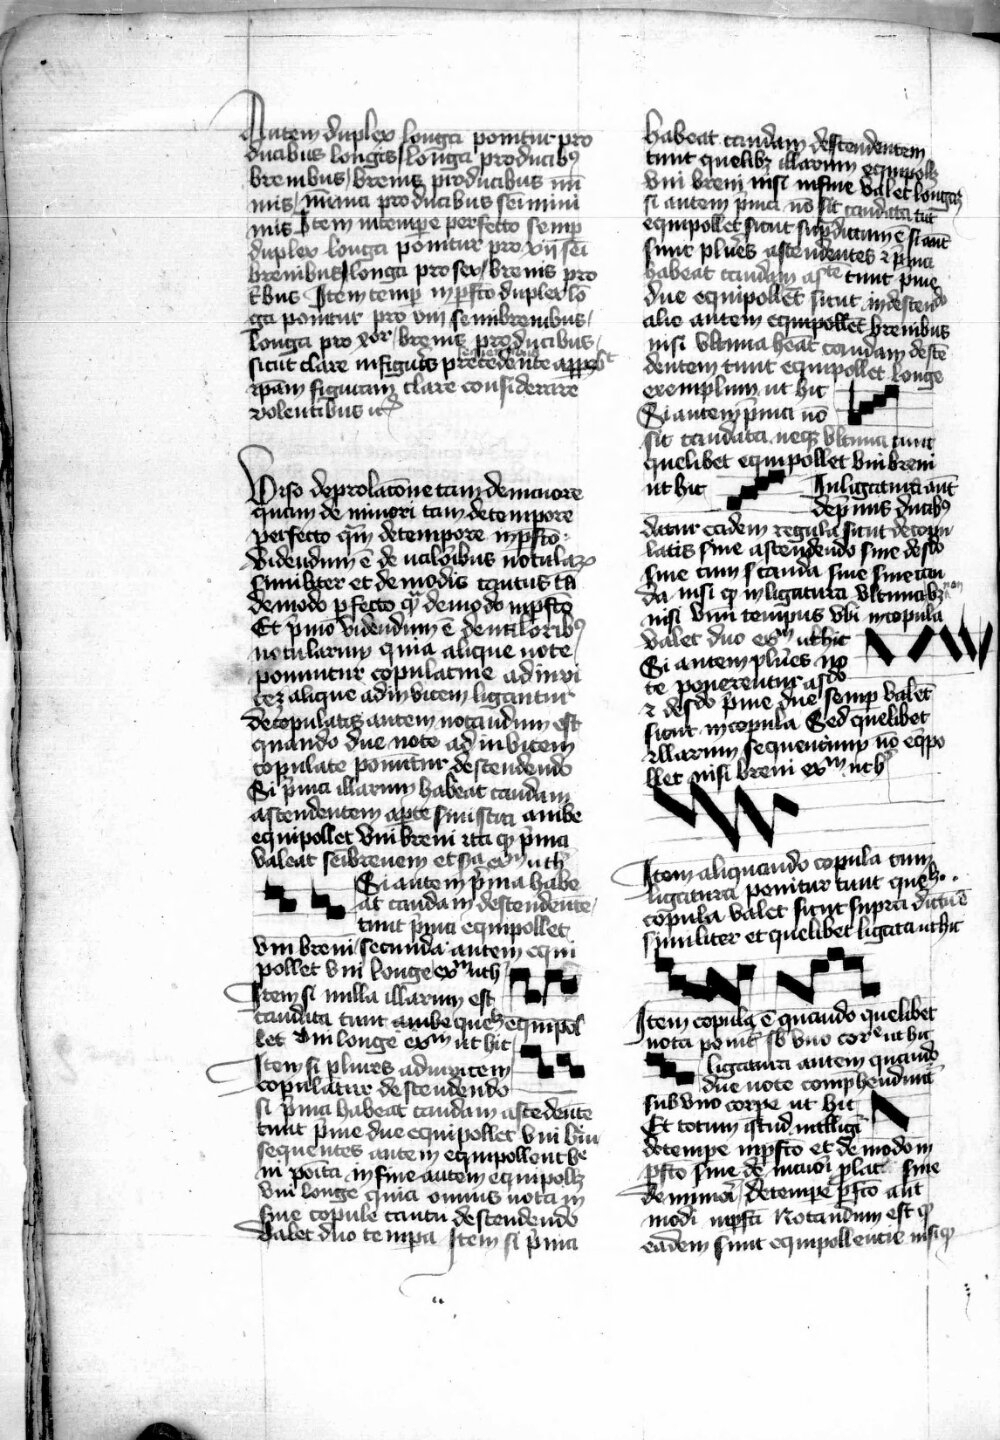 Autem duplex longa ponitur pro
ducibus longis longa producibꝰ
breuibus breuis producibus mi
mis minia producibus seimini
mis Item intempe perfecto semp
duplex longa ponitur pro xii sēi
breuibus longa pro sex breuis pro
tͥbus Item temp̄ inp̄fcto duplex lo
ga ponitur pro viii semibreuibus
longa pro breuis producibus
sicut clare infiguris precedente
ip̄am figuram clare considerare
volentibus
Urso deprolacōne tam demaiore
quam de minori tam detempore
perfecto qm̄ detempore inp̄fcto
videndum ē de valoribus notularꝝ
similiter et demodis cantus tā
demodo p̄fecto demodo inp̄fcto
Et p̄mo videndum ē de valoribꝰ
notularum quia alique note
ponuntur copulatiue adinui
cez alique adinvicem ligantur
decopulatis autem notandum est
quando due note ad invicem
copulate ponūtur descendendo
Si p̄ma illarum habeat caudam
ascendentem apte sinistra ambe
equipollet vni breui ita qꝫ p̄ma
valeat sēibreuem et exm ut h
Si autem p̄ma habe
at caudam descendente
tunc p̄ma equipollet
vni breui secunda autem equi
pollet vni longe exm ut h
Item si nulla illarum est
caudata tunc ambe equipol
let vni longe exm ut hic
Item si plures adinuicem
copulatur descendendo
si p̄ma habeat caudam ascēdente
tunc p̄me due equipollet vni
sequentes autem equipollent be
ui posita in fine autem equipollꝫ
vni longe quia omnis nota in
fine copule cantu descendendo
valet duo tempa Item si p̄ma
habeat caudam descendentem
tunc quelibꝫ illarum equipollꝫ
vni breui nisi infine valet longaꝫ
si autem p̄ma nō sit caudata tūc
equipollet sicut sup̄dictum ē si aūt
sint plures ascendentes ⁊ p̄ma
habeat caudam tunc p̄me
due equipollēt sicut indescendo
alie autem equipollēt breuibus
nisi vltima heāt caudam desce
dentem tunc equipollet longe
exemplum ut hic
Si autem p̄ma nō
sit caudata neqꝫ vltima tunc
quelibet equipollet vni breui
ut hic Inligatura aūt
deprimis duabꝰ
datur eadem regula sicut decopu
latis siue ascendendo siue desc̄do
siue cum cauda siue sine cau
da nisi qꝫ in ligatura vltimabꝫ
nisi vnū tempus vbi incopula
valet duo exm ut hic
Si autem plūes no
te ponerentur asc̄do
⁊ desc̄do p̄me due semp valet
sicut incopula Sed quelibet
illarum sequentium nō eq̄po
llet nisi breui exm ut h
Item aliquando copula cum
ligatura ponitur tunc
copula valet sicut supra dictū ē
similiter et quelibet ligata ut hic
Item copula ē quando quelibet
nota ponit sb vno core ut hic
ligatura autem quando
due note comphendunt
sub vno corpe ut hic
Et totum istud intlligi
detempe inp̄fcto et demodo in
p̄fcto siue de maiori plac siue
de minori detempe p̄fcto aūt
modi inp̄fcti Notandum est qꝫ
eadem sunt equipollencie nisi qꝫ